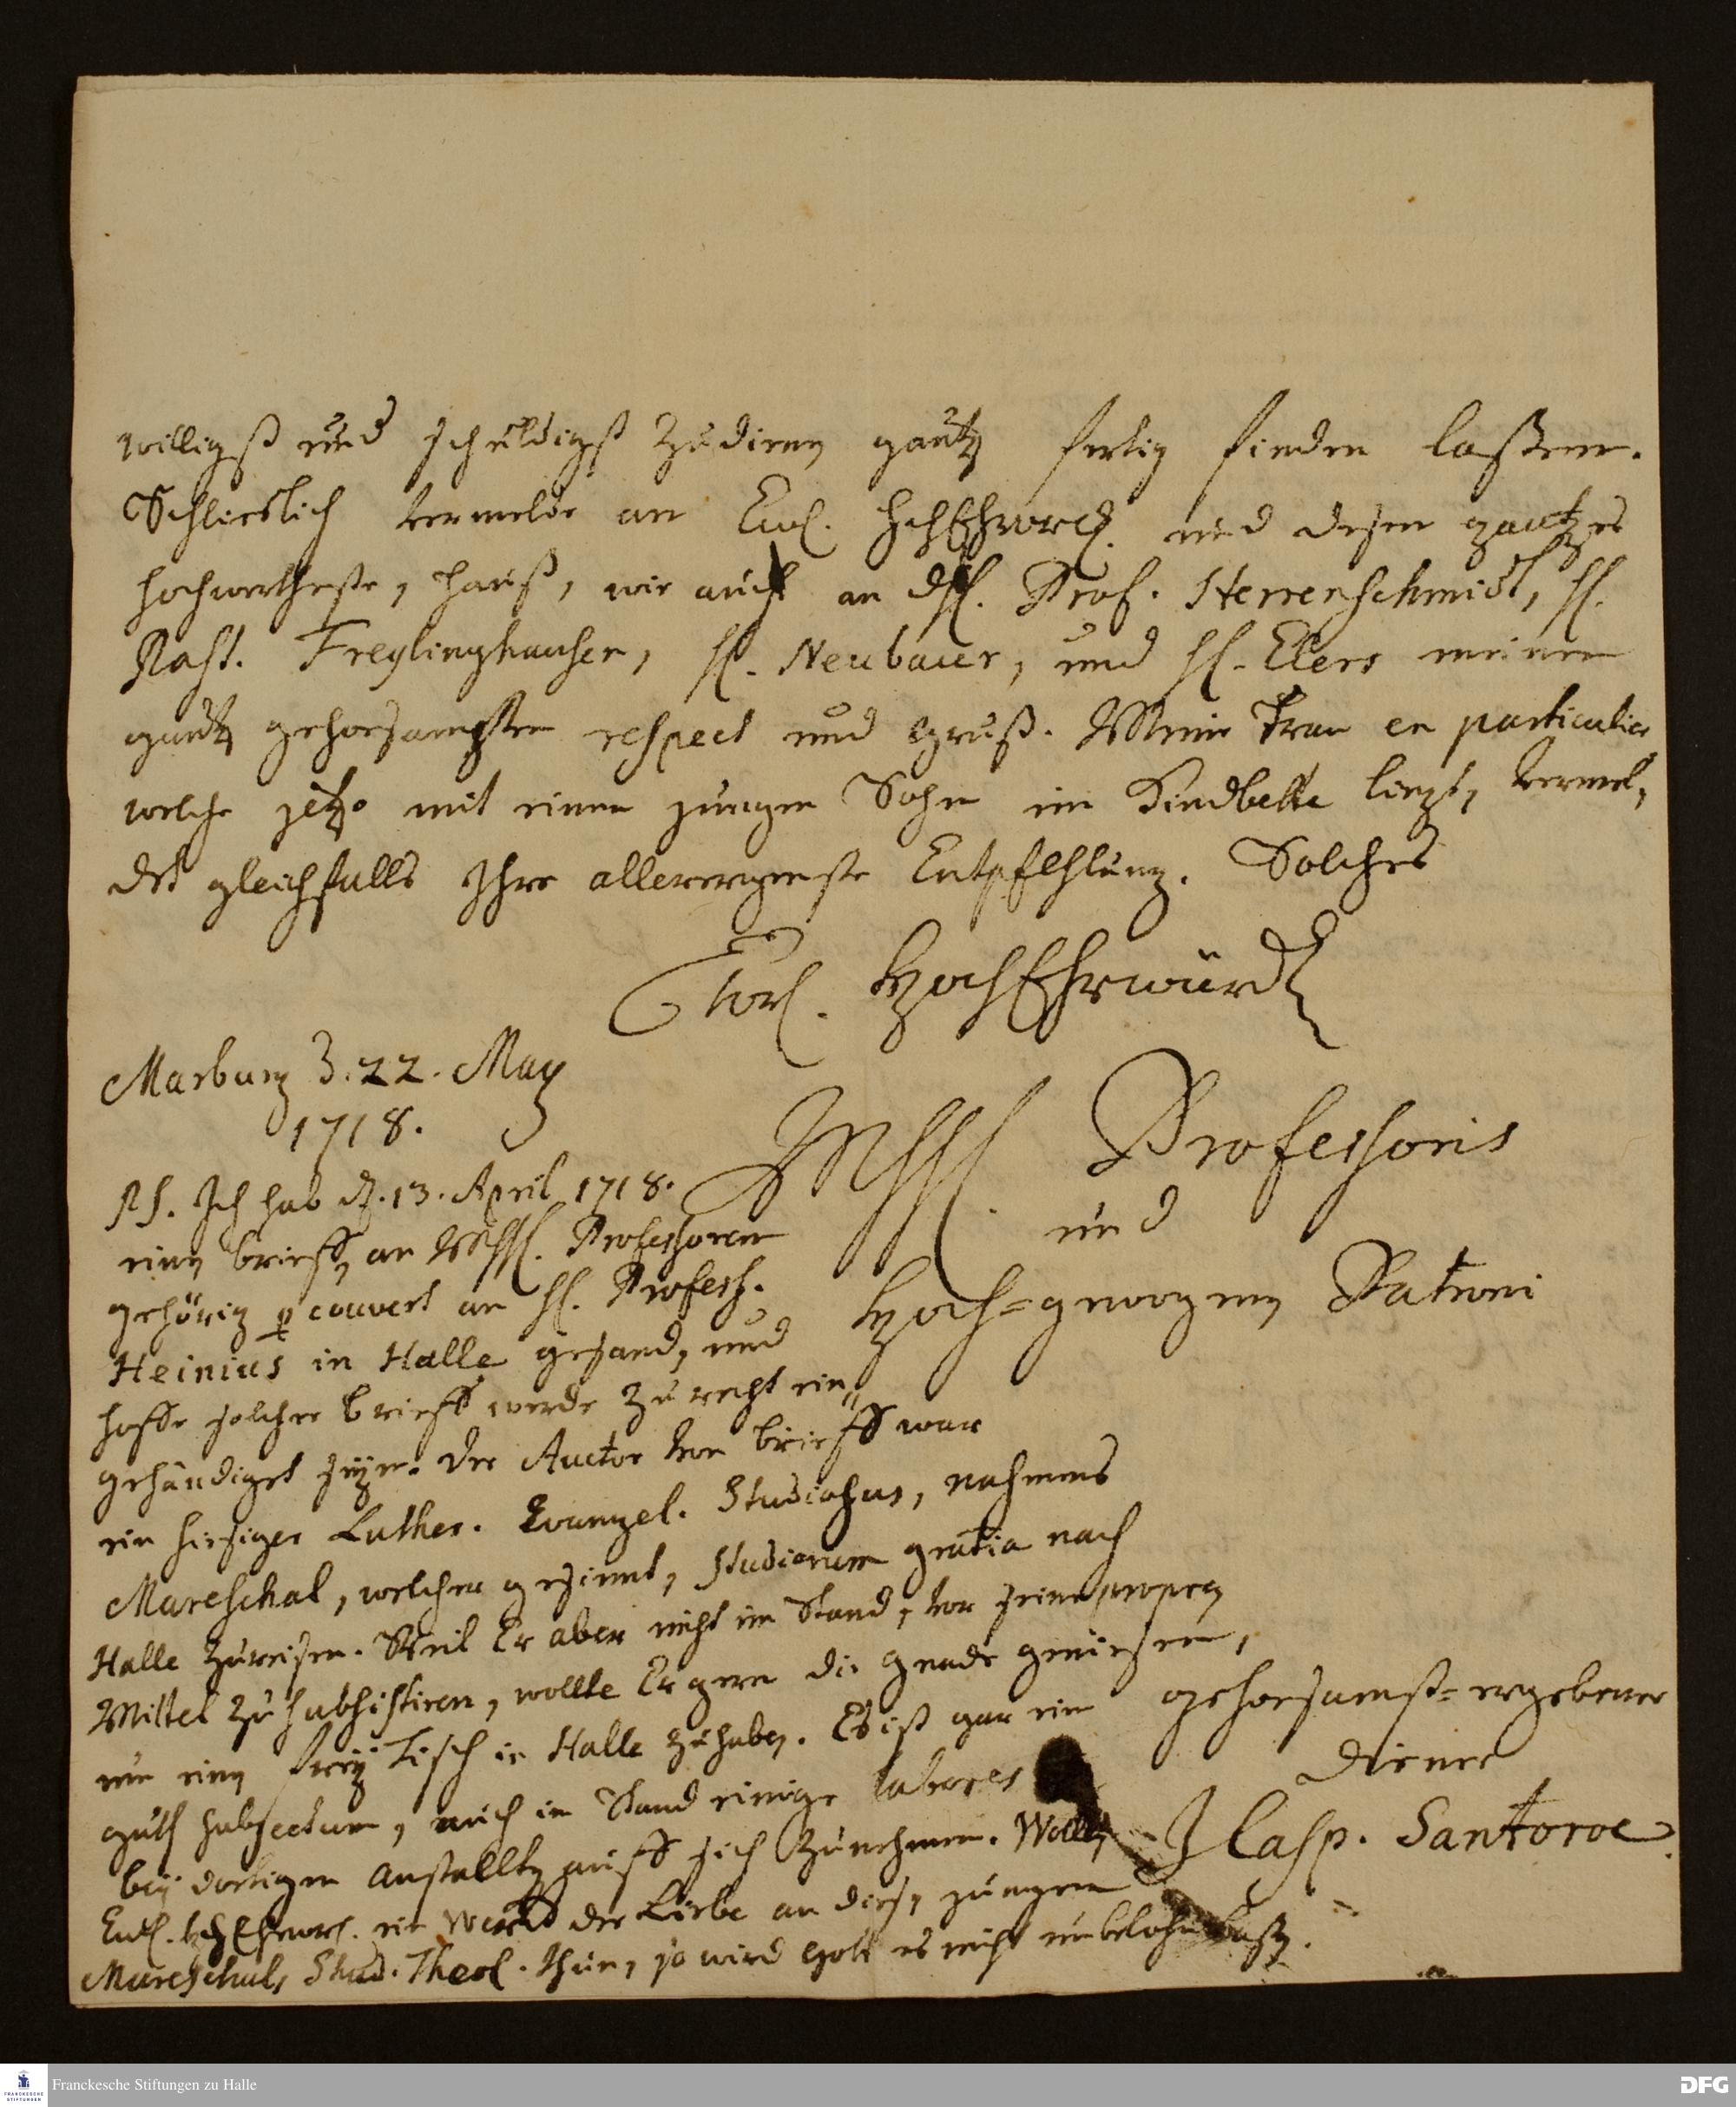 willigst und schuldigst zu dienen gantz fertig finden laßen.
Schließlich vermelde an Ewl. HchEhrwrd. und deßen gantzes
hochwertheste, Hauß, wie auch an H. Prof. Herrenschmidt, H.
Past. Freylinghausen, H. Neubauer, und H. Elers meinen
gantz gehorsamsten respect und Gruß. Meine Frau en particulier
welche jetzo mit einem jungen Sohn im Kindbette liegt, vermel,
det gleichfalls Ihre allerergenste Entpfehlung. Solches
Ewl. HochEhrwürd
Marburg 22. May
1718.
MhhH. Professoris
und
Hoch-gewogenen Patroni
PS. Ich hab d. 13. April 1718.
einen brieff, an MhhH. Professoren
gehörig p couvert an H. Profess.
Heinius in Halle gesand, und
hoffe solcher brieff werde zu recht ein„
gehändiget seyn. Der Auctor von brieff war
ein hiesiger Luther. Evangel. Studiosus, nahmens
Mareschal, welcher gesinnt, studiorum gratia nach
Halle zu reisen. Weil Er aber nicht im Stand, von seinen propren
Mittel zu subsistiren, wollte Er gern die Gnade genießen,
um einen frey Tisch in Halle zu haben. Es ist gar ein
guth subjectum, auch in Stand einige labores
bey dortigen Anstallten auff sich zu nehmen. Wollen
Ewl. HchEhrwl. ein Werck der Liebe an diesen jungen
Mareschal, Stud. Theol. thun, so wird Gott es nicht unbelohnt laßen.
gehorsamst-ergebener
Diener
J Casp. Santoroc
Franckesche Stiftungen zu Halle
DFG